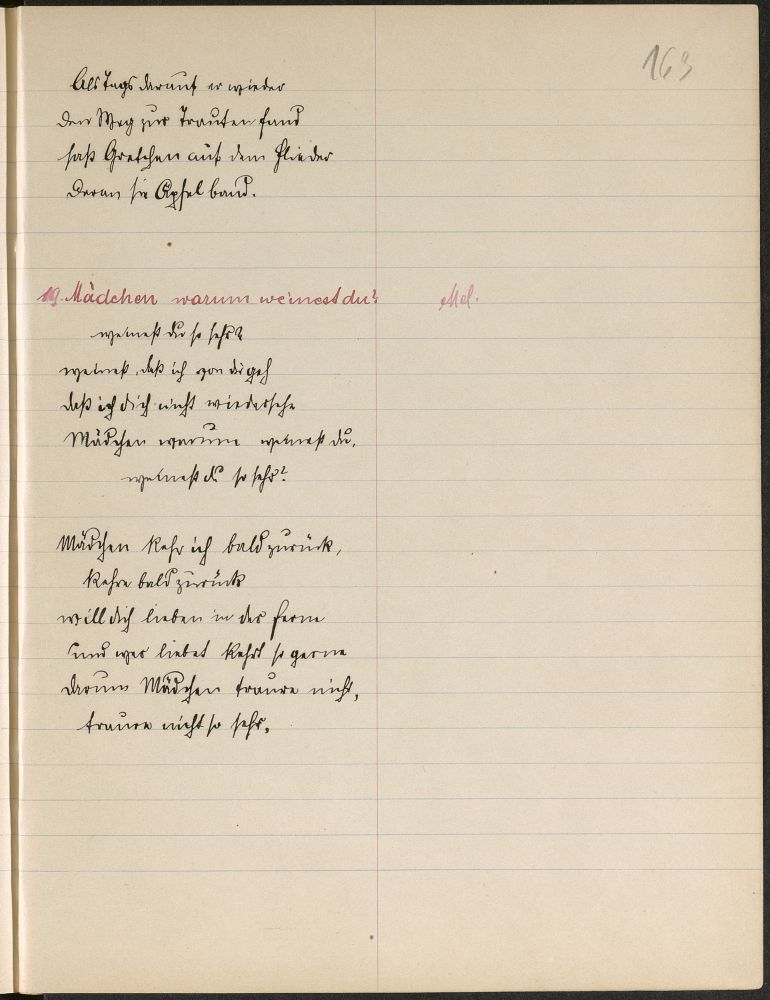 163
Als Tags darauf er wieder
den Weg zur Trauten fand
saß Gretchen auf dem Flieder
daran sie Äpfel band.
19. Mädchen warum weinest du? Mel.
weinest du so sehr?
weinest, daß ich von dir geh
daß ich dich nicht wiedersehe
Mädchen warum weinest du,
weinest du so sehr?
Mädchen kehr ich bald zurück,
kehre bald zurück
will dich lieben in der ferne
und wer liebet kehrt so gerne
darum Mädchen traure nicht,
traure nicht so sehr.